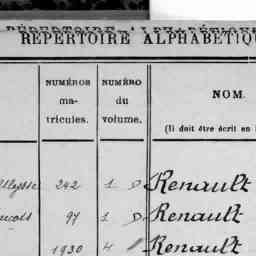 RÉPERTOIRE ALPHABÉTIQU
RÉPERTOIRE ALPHABÉTIQU
NUMÉROS ma- tricules.
NUMÉRO du volume.
NOM.
(Il doit être écrit en
Ulysse 242 1 D Renault
ançois 97 1 D Renault
1930 4 " Renault